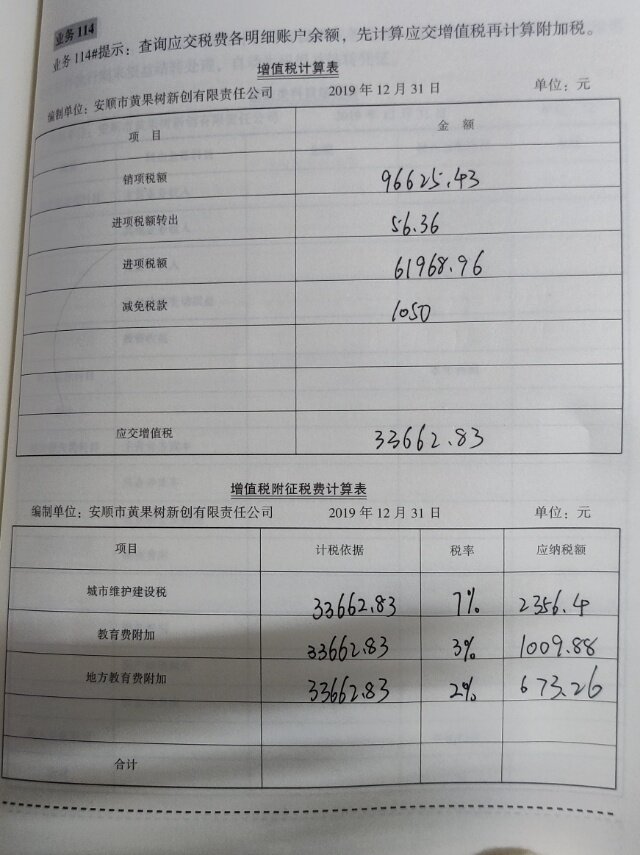 业务 114
业务 114#提示：查询应交税费各明细账户余额，先计算应交增值税再计算附加税。
增值税计算表
编制单位：安顺市黄果树新创有限责任公司 2019 年 12 月 31 日 单位：元
项 目 金 额
销项税额 96625.43
进项税额转出 56.36
进项税额 61968.96
减免税款 1050
应交增值税 33662.83
增值税附征税费计算表
编制单位：安顺市黄果树新创有限责任公司 2019 年 12 月 31 日 单位：元
项目 计税依据 税率 应纳税额
城市维护建设税 33662.83 7% 2356.4
教育费附加 33662.83 3% 1009.88
地方教育费附加 33662.83 2% 673.26
合计